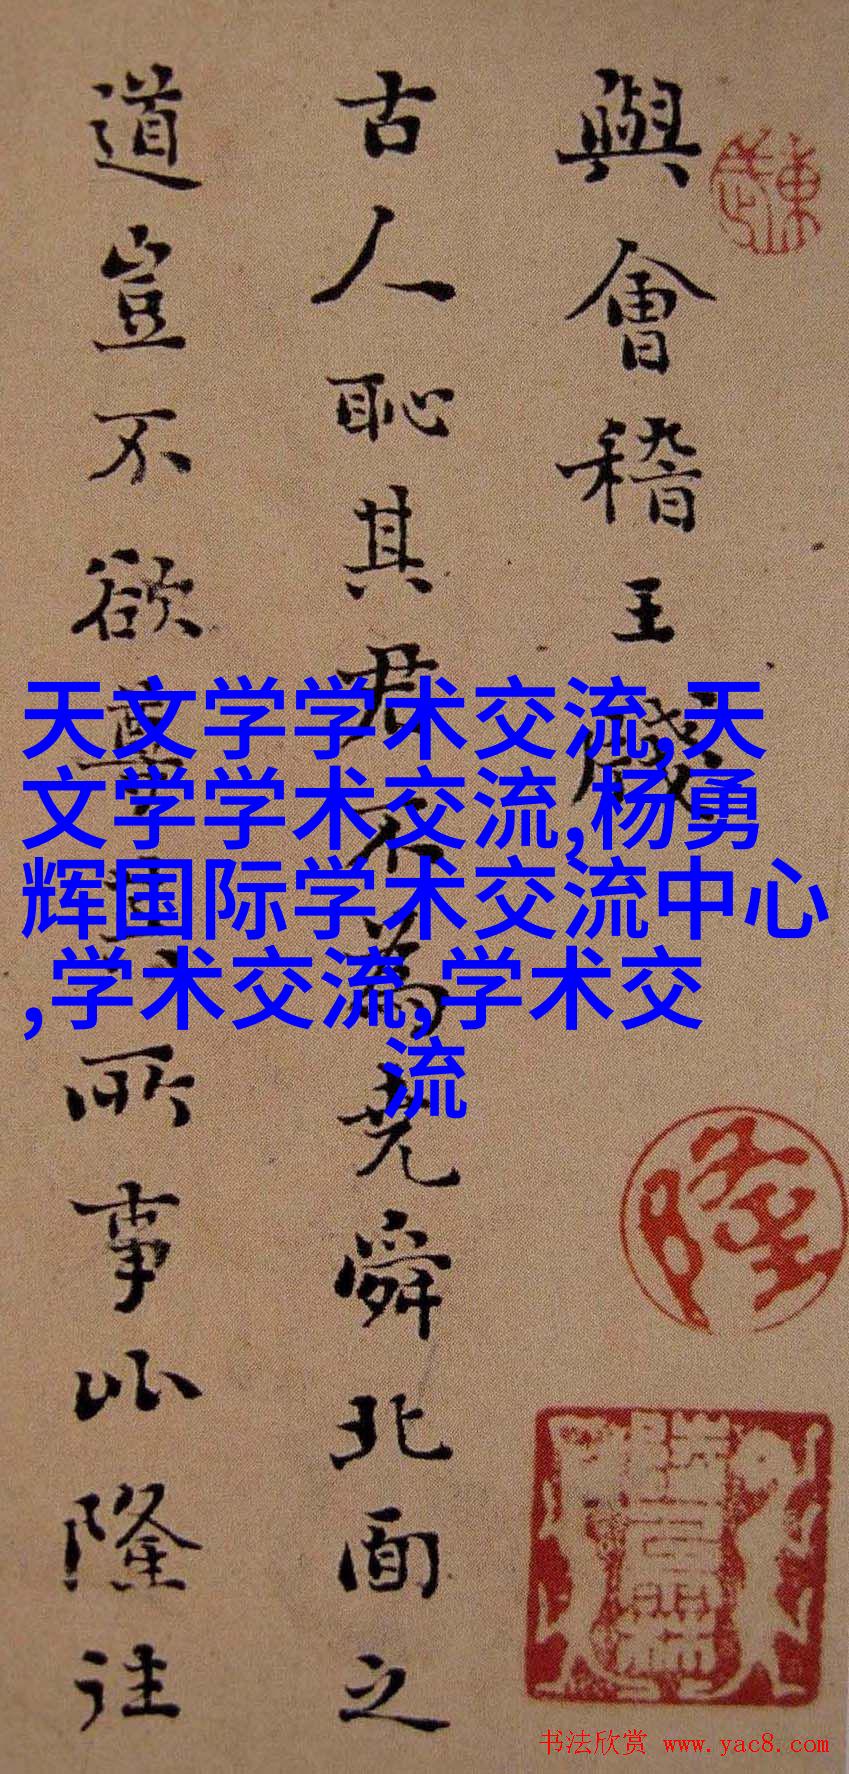 與會稽王牋
古人恥其君不為堯舜北面之
道豈不欲尊其所事比隆往
天文学学术交流,天
文学学术交流,杨勇
辉国际学术交流中心
,学术交流,学术交
流
隆
书法欣赏 www.yac8.com